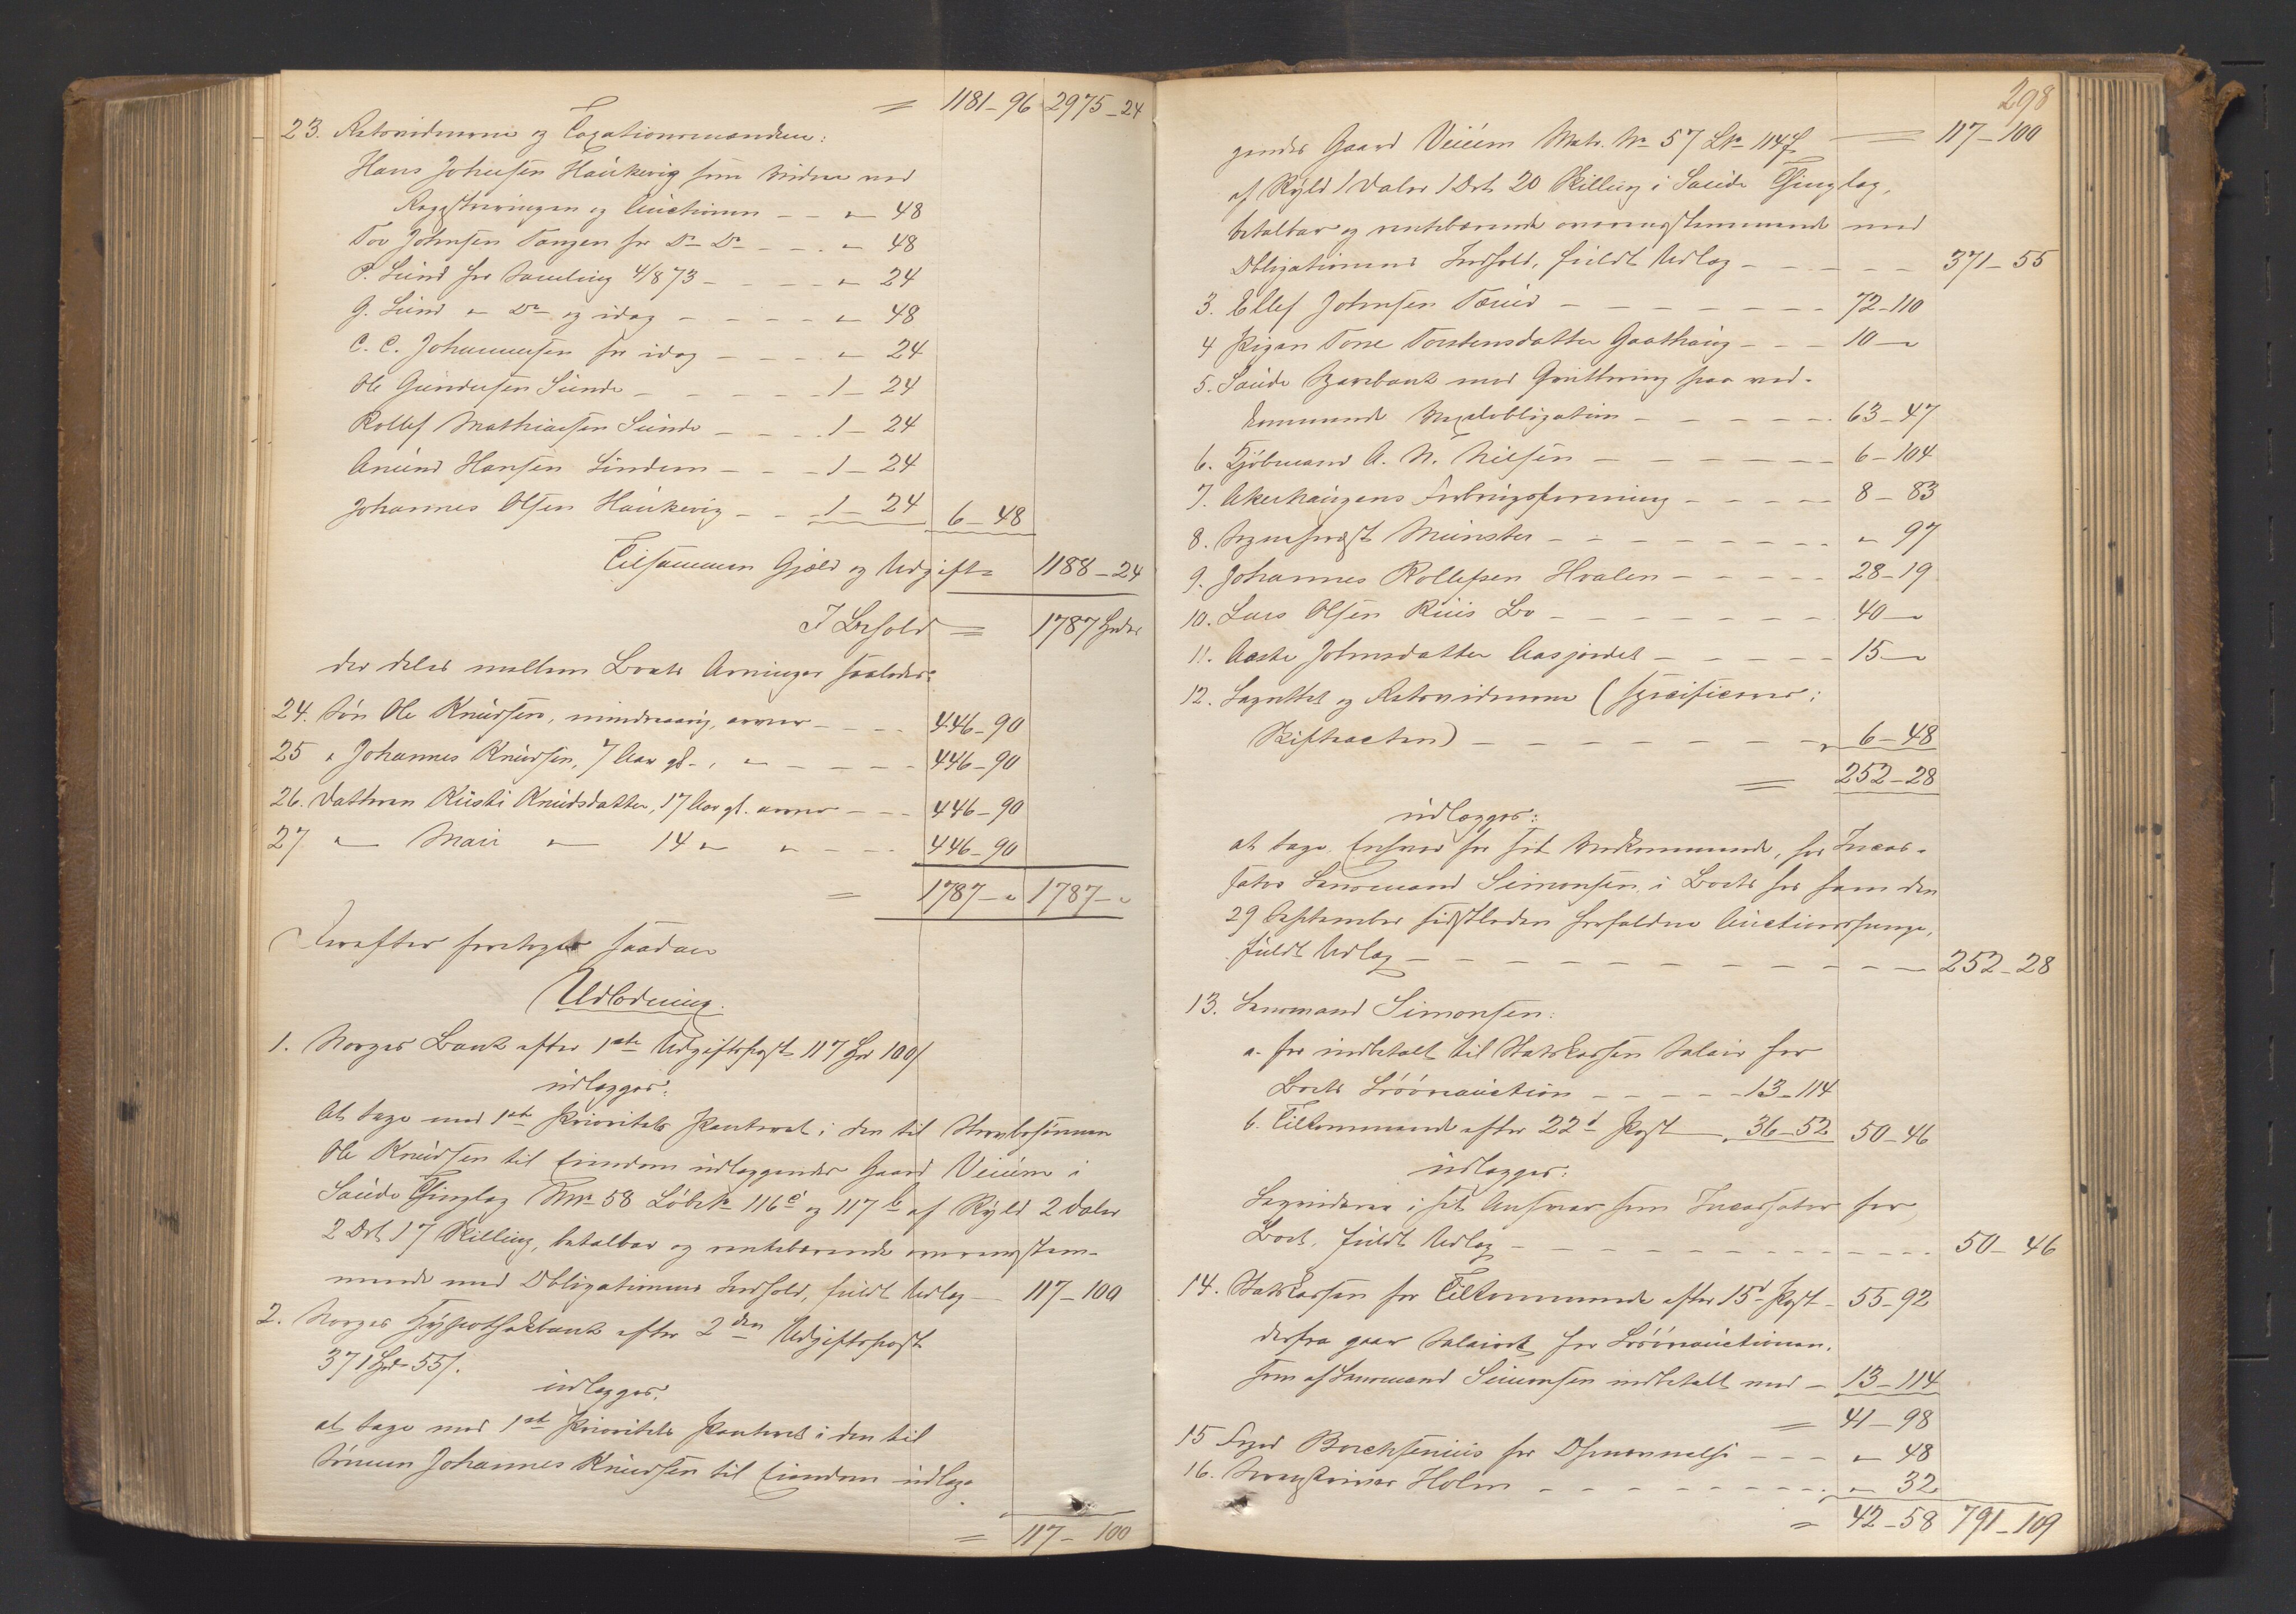 = 1181-96 2975-24
23. Retsvidnerne og Taxationsmændene:
Hans Johnsen Haukevig som Vidne ved
Registreringen og Auctionen - - " 48
Tov Johnsen Tangen for Do Do - - - " 48
P. Lund for Samling 4/8 73 - - - - " 24
G. Lund " Do og idag - - - - " 48
C. C. Johannesen for idag - - - " 24
Ole Gundersen Sunde - - - - - 1-24
Rollef Mathiasen Sunde - - - - 1-24
Amund Hansen Lindem - - - 1-24
Johannes Olsen Haukevig - - 1-24 6-48
Tilsammen Gjæld og Udgift = 1188-24
I Behold = 1787 Spdlr
der deles mellem Boets Arvinger saaledes:
24. Søn Ole Knudsen, mindreaarig, arver - - - - 446-90
25 " Johannes Knudsen, 7 Aar gl., " - - - - 446-90
26. Datteren Kirsti Knudsdatter, 17 Aar gl. arver - - - 446-90
27 " Mari " 14 " " - - - 446-90
= 1787-" 1787-"
Derefter foretoges saadan
Udlodning.
1. Norges Bank efter 1ste Udgiftspost 117 Spd 100 s
udlægges:
At tage med 1ste Prioritets Panteret i den til Stervbosønnen
Ole Knudsen til Eiendom udlæggendes Gaard Veium i
Saude Thinglag MNo 58 LøbeNo 116c og 117b af Skyld 2 Daler
2 Ort 17 Skilling, betalbar og rentebærende overensstem-
mende med Obligationens Indhold, fuldt Udlæg - - 117-100
2. Norges Hypothekbank efter 2den Udgiftspost
371 Spd - 55 s.
udlægges:
at tage med 1ste Prioritets Panteret i den til
Sønnen Johannes Knudsen til Eiendom udlæg-
= 117-100
298
gendes Gaard Veium Matr. No 57 LNo 114f = 117-100
af Skyld 1 Daler 1 Ort 20 Skilling i Saude Thinglag,
betalbar og rentebærende overensstemmende med
Obligationens Indhold, fuldt Udlæg - - - - - 371-55
3. Ellef Johnsen - - - - - - - 72-110
4 Pigen Tone Torstensdatter Gaathaug - - - 10-"
5. Saude Sparebank mod Qvittering paa ved-
kommende Vexelobligation - - - - - - 63-47
6. Kjøbmand A. N. Nielsen - - - - - - 6-104
7. Akerhaugens Forbrugsforening - - - - - 8-83
8. Sognepræst Münster - - - - - - - - " 97
9. Johannes Rollefsen Hvalen - - - - - 28-19
10. Lars Olsen Ruis Bo - - - - - - - 40-"
11. Aaste Johnsdatter Aasjordet - - - - - 15-"
12. Lagrettet og Retsvidnerne (specificeres i
Skifteacten) - - - - - - - - - 6-48
= 252-28
udlægges:
at tage Enhver for sit Vedkommende, hos Incas-
sator Lensmand Simonsen i Boets hos ham den
29 September sidstleden forfaldne Auctionspenge,
fuldt Udlæg - - - - - - - - - - - 252-28
13. Lensmand Simonsen:
a. for indbetalt til Statskassen Salair for
Boets Løsøreauction - - - - - 13-114
b. Tilkommende efter 22d Post - 36-52 50-46
udlægges:
Legninderne i sit Ansvar som Incassator for
Boet, fuldt Udlæg - - - - - - - - - - - 50-46
14. Statskassen for Tilkommende efter 15d Post - 55-92
derfra gaar Salairet for Løsøreauctionen,
som af Lensmand Simonsen indbetalt med - 13-114
= 41-98
15 Foged Borchsenius for Opnævnelse - - - " 48
16. Sorenskriver Holm - - - - - - - - " 32
= 42-58 791-109